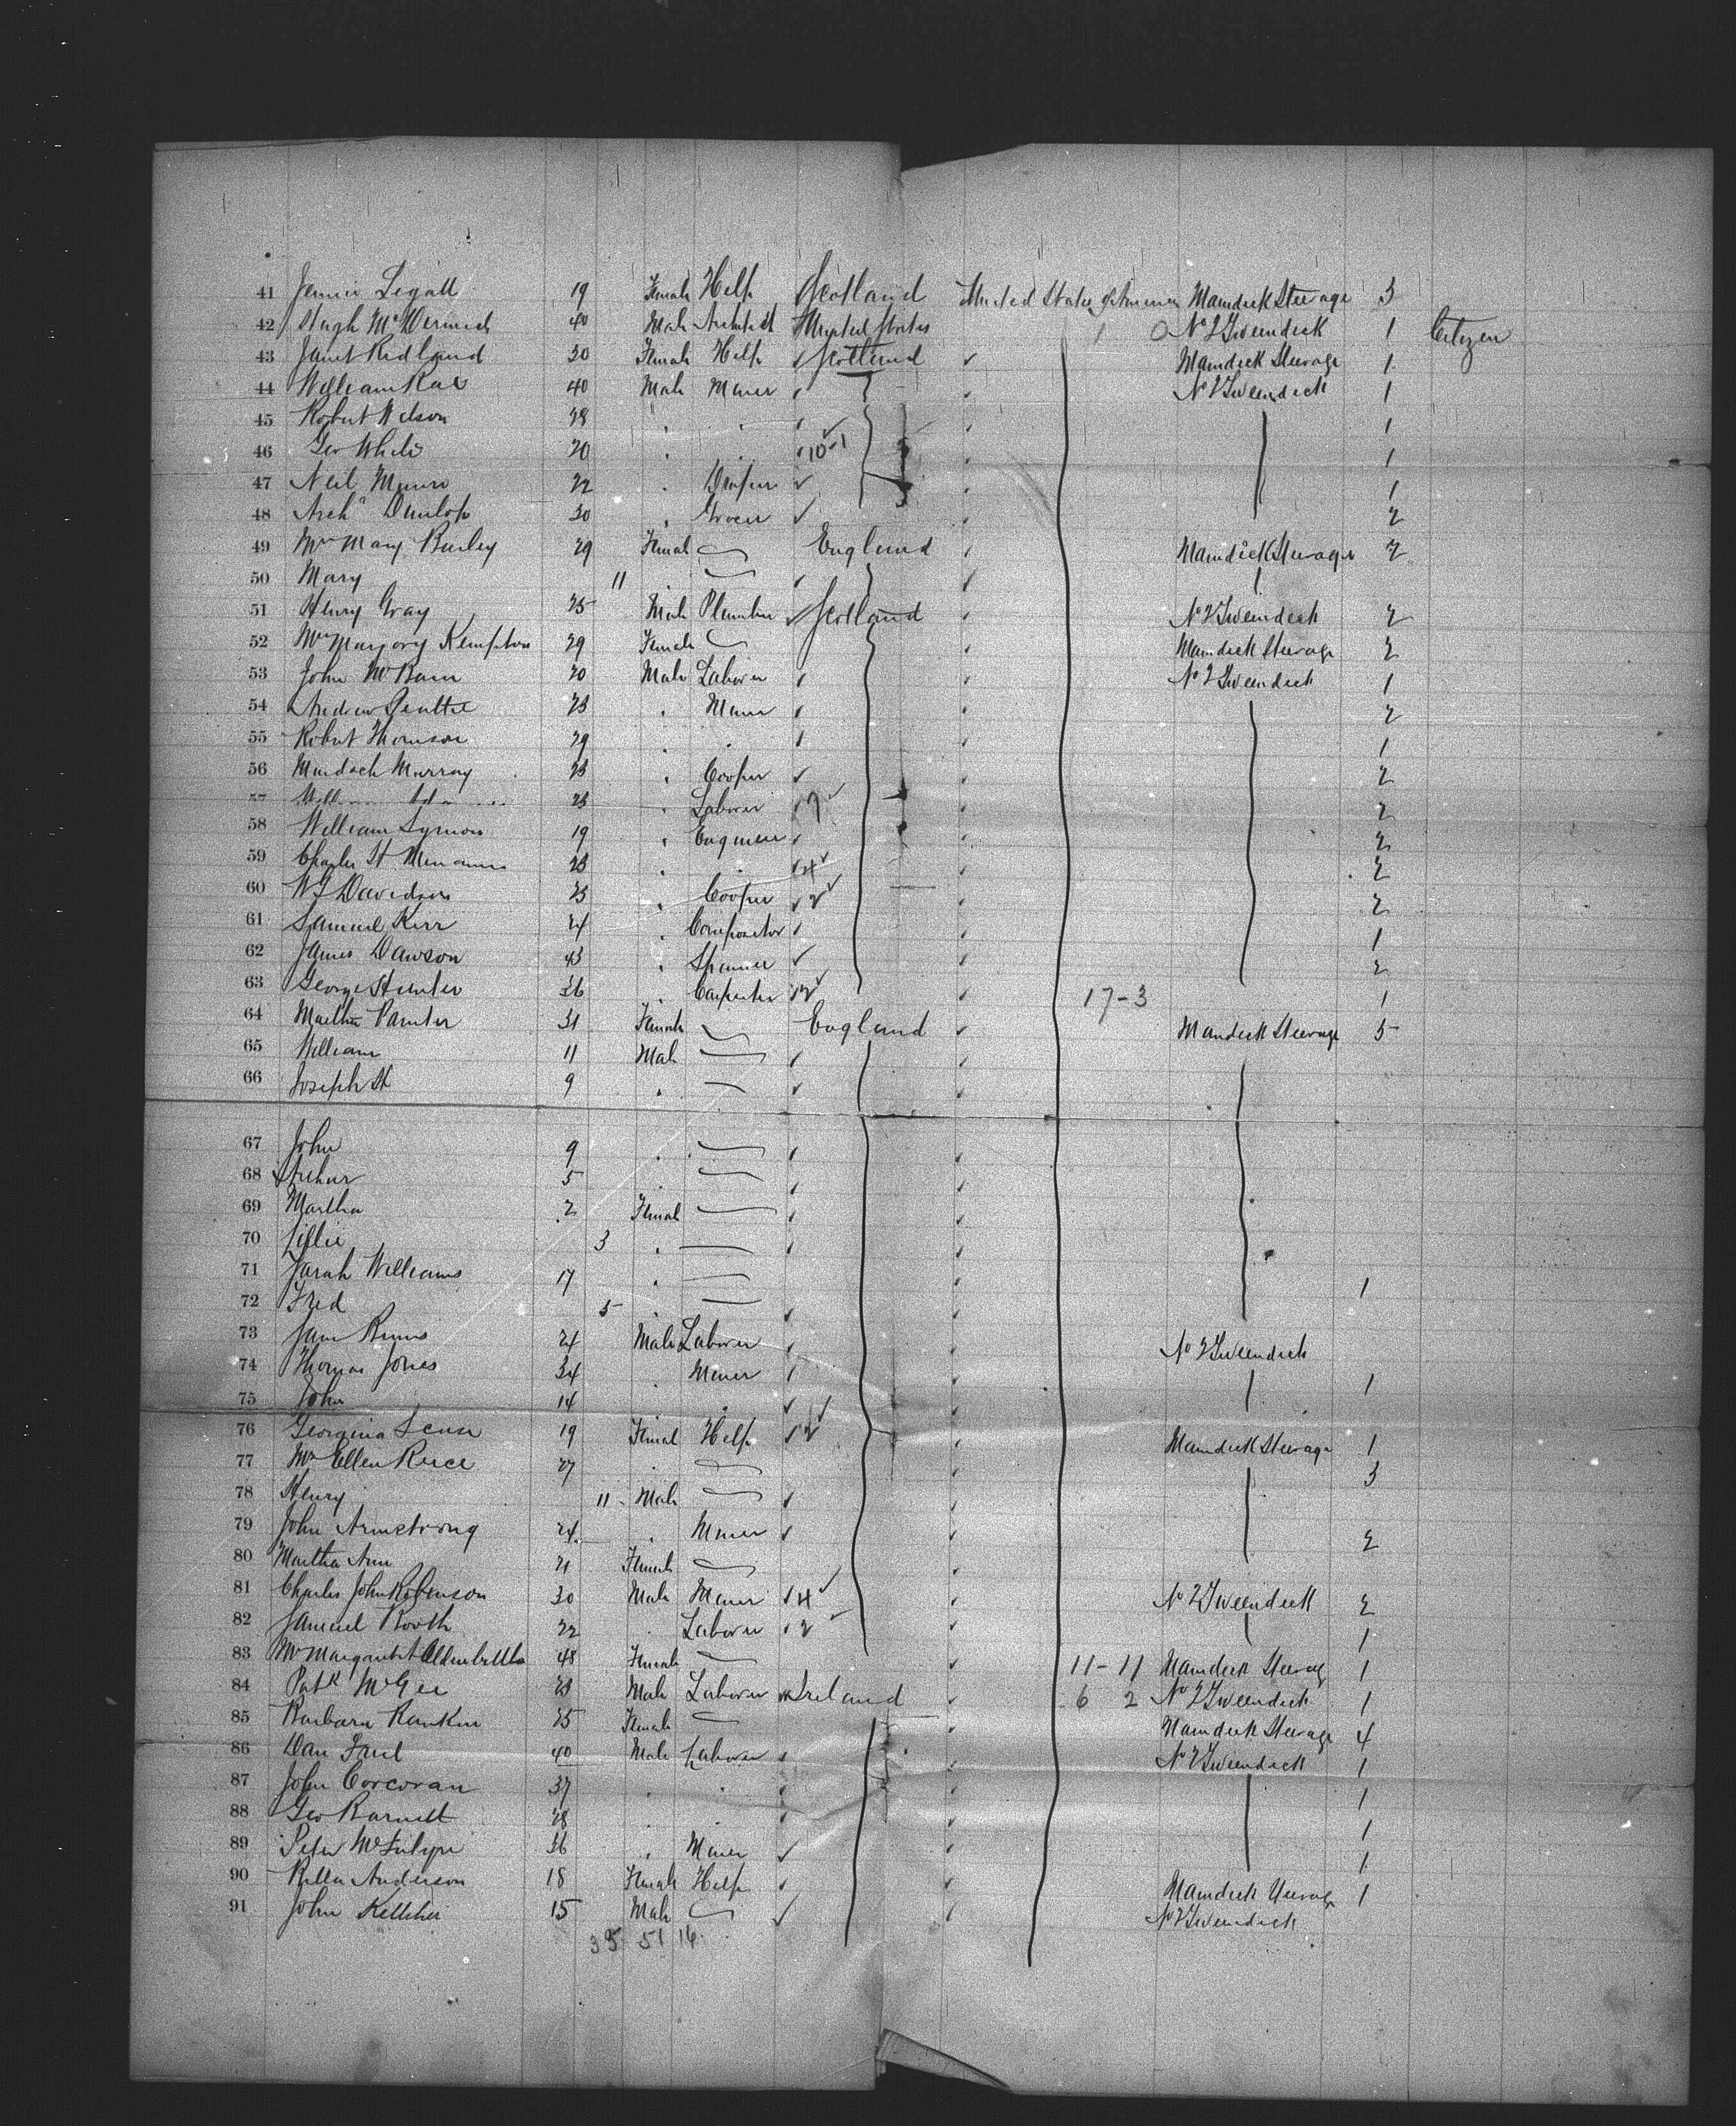 41 Jennie Legall 19 Female Help Scotland United States of America Maindeck Steerage 3
42 Hugh McDermid 40 Male Architect United States 1 0 No 2 Tweendeck 1 Citizen
43 Janet Redland 30 Female Help Scotland Maindeck Steerage 1
44 William Rae 40 Male Miner No 2 Tweendeck 1
45 Robert Wilson 28 " " 1
46 Geo White 20 " " 10-1 1
47 Neil Munro 22 " Draper 1
48 Archd Dunlop 30 " Grocer 2
49 Mrs Mary Burley 29 Female England Maindeck Steerage 2
50 Mary 11
51 Henry Gray 25 Male Plumber Scotland No 2 Tweendeck 2
52 Mrs Margory Kempton 29 Female Maindeck Steerage 2
53 John McBain 20 Male Laborer No 2 Tweendeck 1
54 Andrew 23 " Miner 2
55 Robert Thomson 29 " " 1
56 Murdoch Murray 23 " Cooper 2
57 23 " Laborer 7 2
58 William Symon 19 " Engineer 2
59 Charles St 23 " " 4 2
60 Davidson 23 " Cooper 2 2
61 Samuel Kerr 24 " Compositor 1
62 James Dawson 43 " Spinner 2
63 George Hunter 36 " Carpenter 12 17-3 1
64 Martha Painter 31 Female England Maindeck Steerage 5
65 William 11 Male
66 Joseph H 9 "
67 John 9 "
68 Arthur 5 "
69 Martha 2 Female
70 Lillie 3 "
71 Sarah Williams 17 " 1
72 Fred 5 "
73 24 Male Laborer No 2 Tweendeck
74 Thomas Jones 34 " Miner 1
75 John 14 "
76 Georgina 19 Female Help 2 Maindeck Steerage 1
77 Mrs Ellen 27 " 3
78 Henry 11 Male
79 John Armstrong 24 " Miner 2
80 Martha Ann 21 Female
81 Charles John Robinson 30 Male Miner 4 No 2 Tweendeck 2
82 Samuel Booth 22 " Laborer 2 1
83 Mrs Margaret 48 Female 11-11 Maindeck Steerage 1
84 Patk McGee 23 Male Laborer Ireland 6 2 No 2 Tweendeck 1
85 Barbara Rankin 25 Female Maindeck Steerage 4
86 Dan 40 Male Laborer No 2 Tweendeck 1
87 John Corcoran 37 " " 1
88 Geo Barnett 28 " " 1
89 Peter 36 " Miner 1
90 Bella Anderson 18 Female Help Maindeck Steerage 1
91 John Kelliher 15 Male No 2 Tweendeck
35 51 16